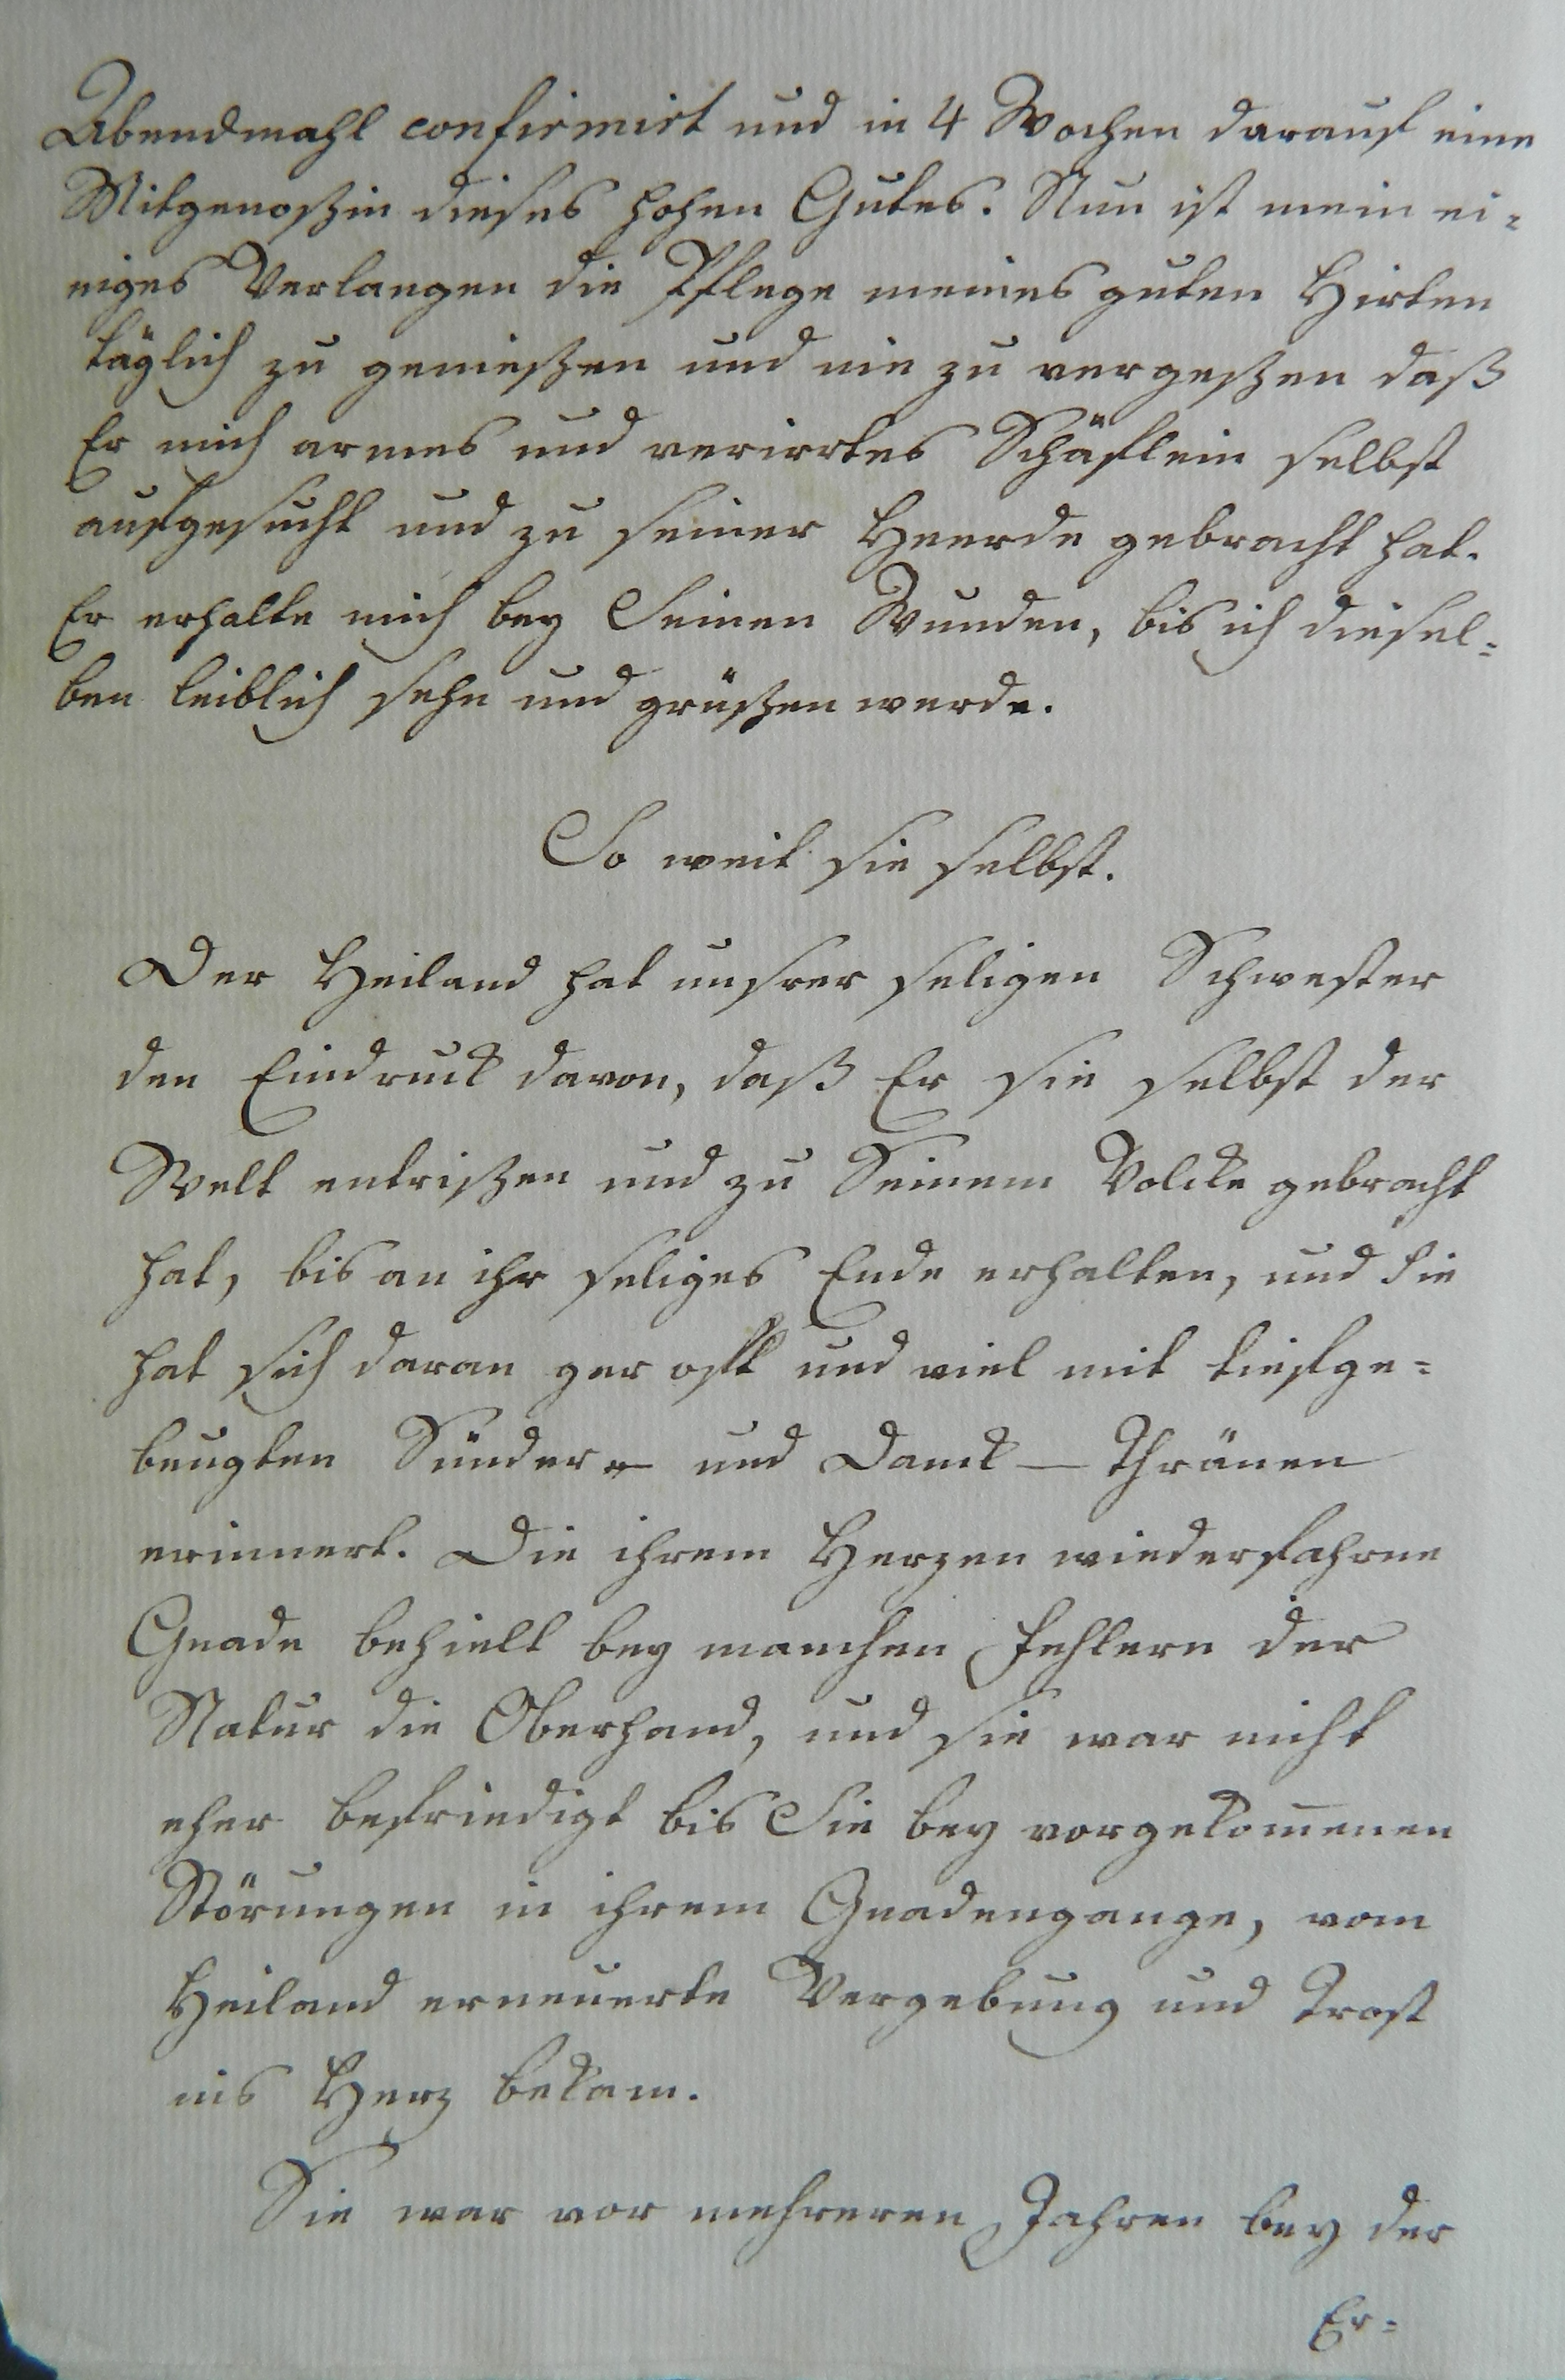 Abendmahl confirmirt und in 4 Wochen darauf eine
Mitgenoßin dieses hohen Gutes. Nun ist mein ei-
niges Verlangen die Pflege meines guten Hirten
täglich zu genießen und nie zu vergeßen daß
Er mich armes und verirrtes Schäflein selbst
aufgesucht und zu seiner Heerde gebracht hat.
Er erhalte mich bey Seinen Wunden, bis ich diesel=
ben leiblich sehn und grüßen werde.
So weit sie selbst.
Der Heiland hat unsrer seligen Schwester
den Eindruck davon, daß Er sie selbst der
Welt entrißen und zu Seinem Volcke gebracht
hat, bis an ihr seliges Ende erhalten, und sie
hat sich daran gar oft und viel mit tiefge=
beugten Sünder- und Danck- Thränen
erinnert. Die ihrem Herzen wiederfahrne
Gnade behielt bey manchen Fehlern der
Natur die Oberhand, und sie war nicht
eher befriedigt bis Sie bey vorgekom̅enen
Störungen in ihrem Gnadengange, vom
Heiland erneuerte Vergebung und Trost
ins Herz bekam.
Sie war vor mehreren Jahren bey der
Er=